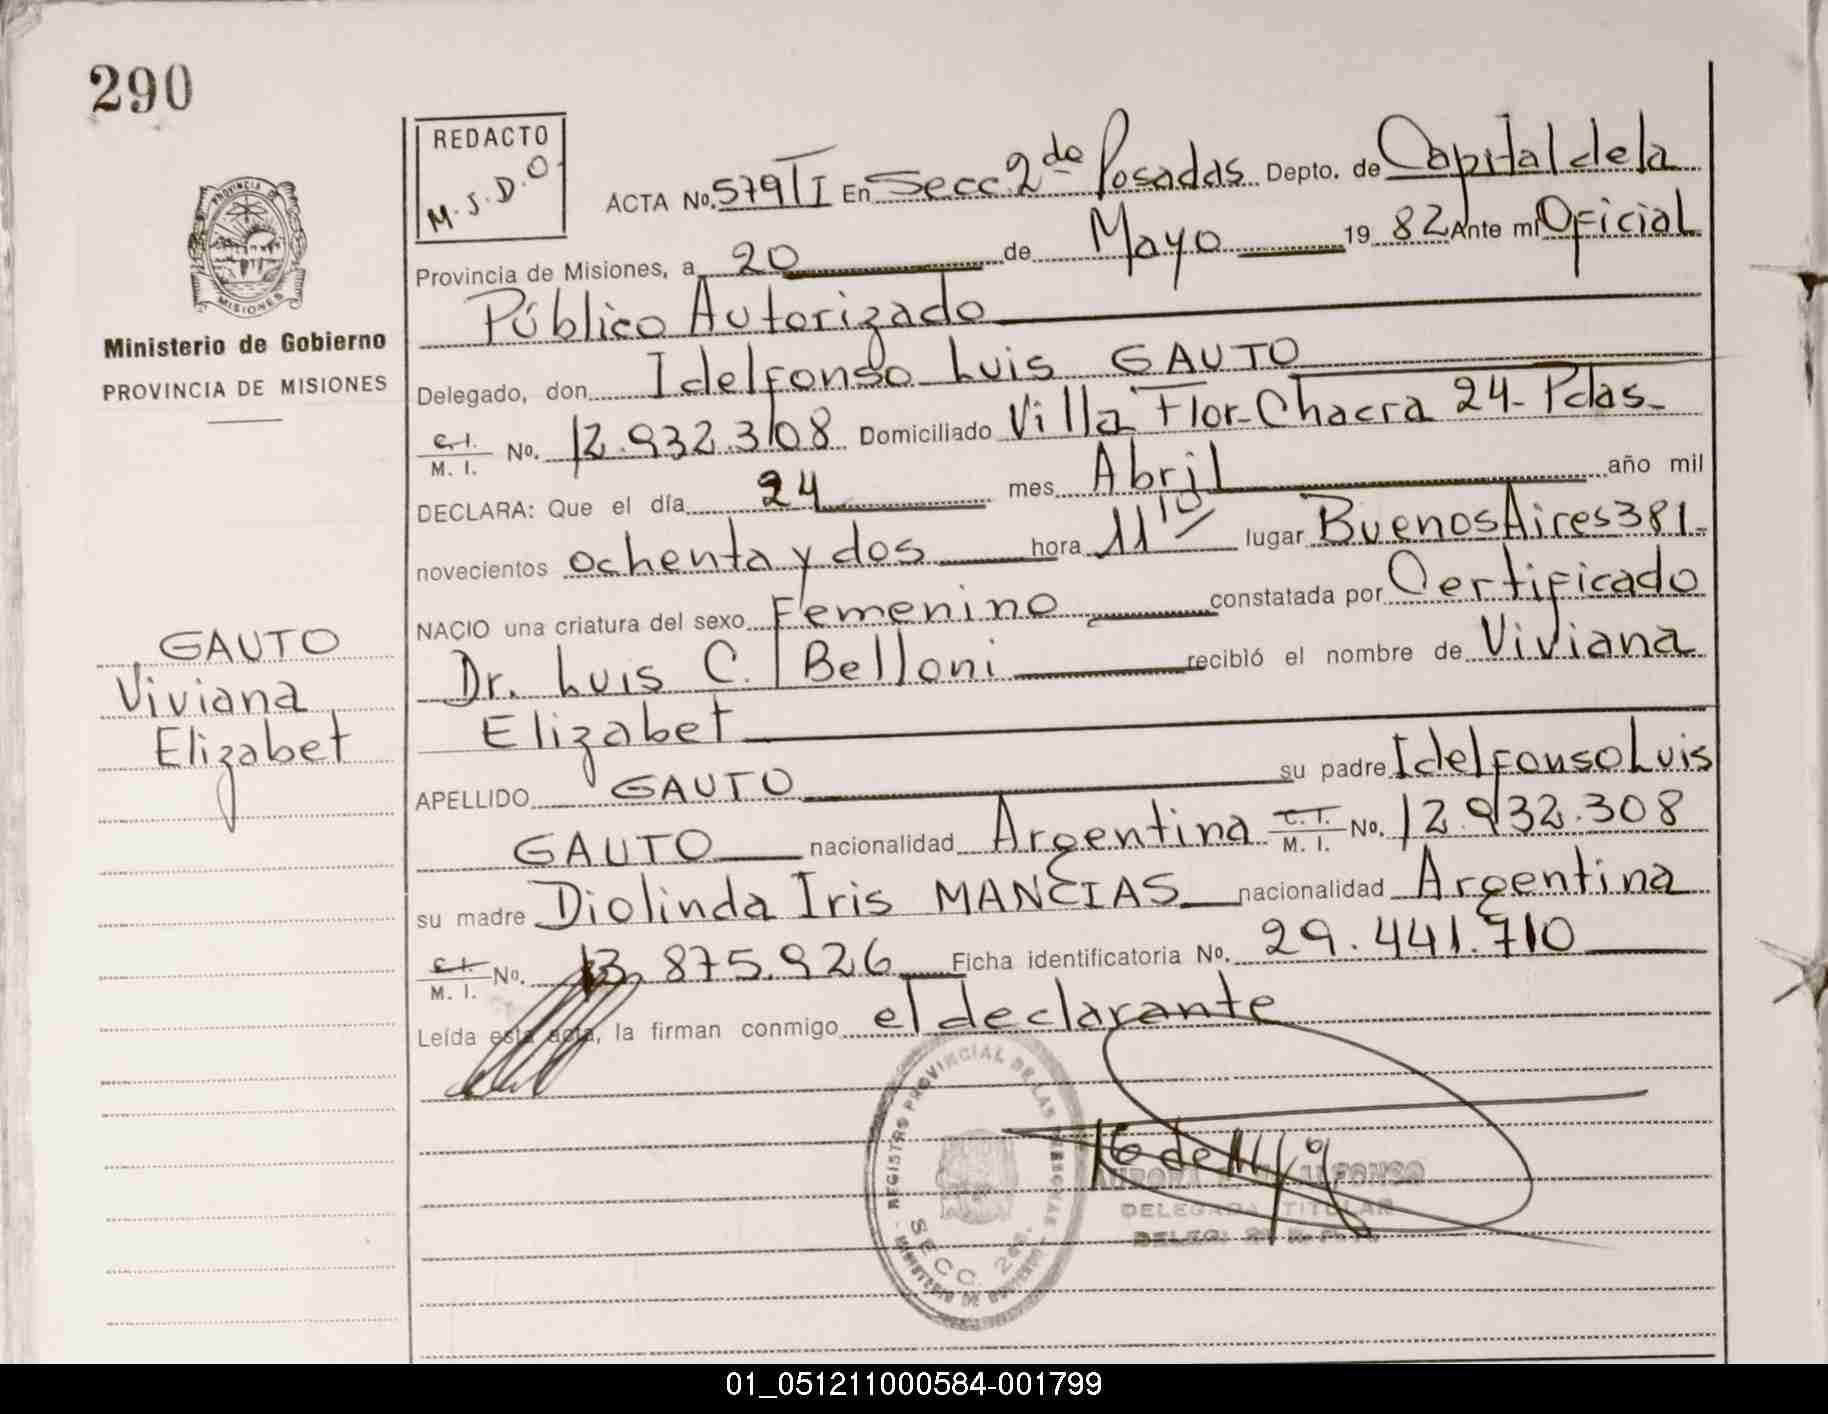 290
REDACTO
M.S.D.O.
ACTA No. 579 T I En Secc. 2da Posadas Depto. de Capital de la
Provincia de Misiones, a 20 de Mayo 1982 Ante mi Oficial
Público Autorizado
Delegado, don Idelfonso Luis GAUTO
C.I. M. I. No. 12.932.308 Domiciliado Villa Flor-Chacra 24-Pdas-
DECLARA: Que el día 24 mes Abril año mil
novecientos ochenta y dos hora 11 10 lugar Buenos Aires 381-
NACIO una criatura del sexo Femenino constatada por Certificado
Dr. Luis C. Belloni recibió el nombre de Viviana
Elizabet
APELLIDO GAUTO su padre Idelfonso Luis
GAUTO nacionalidad Argentina C.I. M. I. No. 12.932.308
su madre Diolinda Iris MANCIAS nacionalidad Argentina
C.I. M. I. No. 13.875.926 Ficha identificatoria No. 29.441.710
Leída esta acta, la firman conmigo el declarante
PROVINCIA DE
MISIONES
Ministerio de Gobierno
PROVINCIA DE MISIONES
GAUTO
Viviana
Elizabet
REGISTRO PROVINCIAL DE LAS PERSONAS
SECC. 2da.
MINISTERIO DE GOBIERNO
DELEGADA TITULAR
01_051211000584-001799